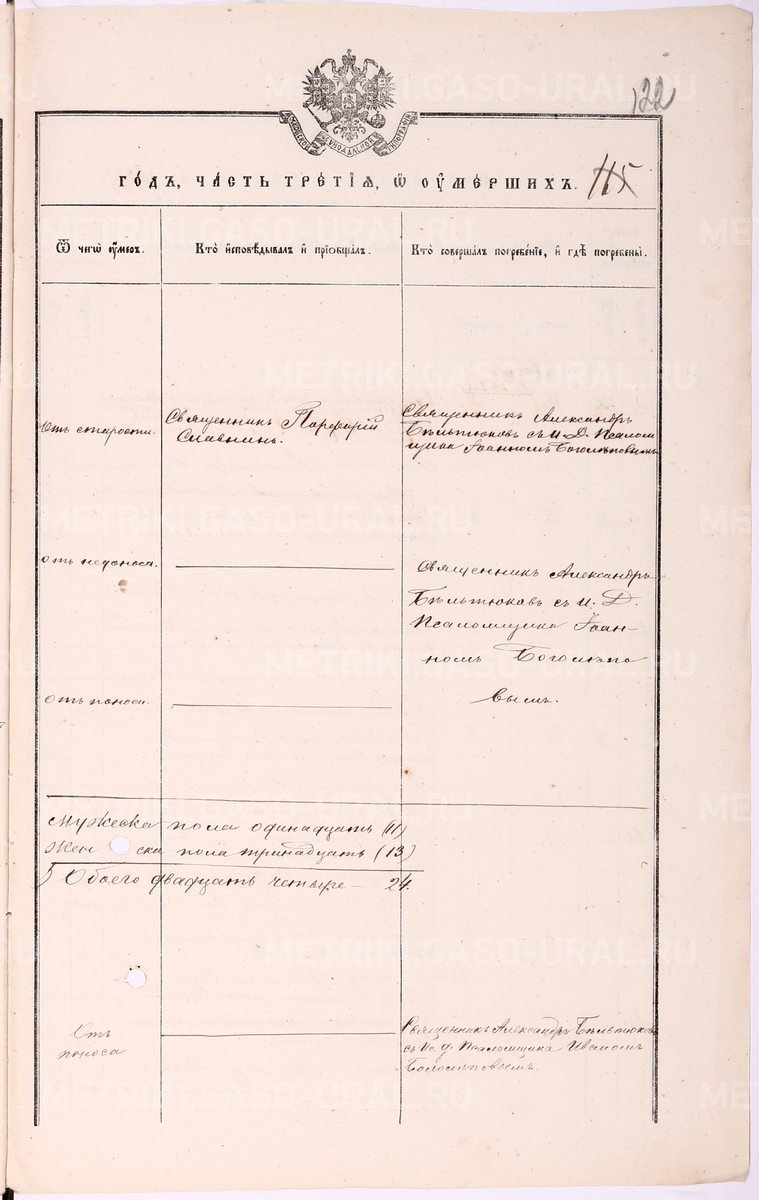 122
МОСКОВСКОЙ СѴНОДАЛЬНОЙ ТИПОГРАФІИ
ГОДЪ, ЧАСТЬ ТРЕТІѦ, Ѡ ОУМЕРШИХЪ. 115
Ѿ чегѡ оумеръ.
Кто исповѣдывалъ и пріобщалъ.
Кто совершалъ погребеніе, и гдѣ погребены.
Отъ старости.
Священникъ Порфирій
Славнинъ.
Священникъ Александръ
Бѣльтюковъ съ И. Д. Псалом
щика Іоанномъ Боголѣповымъ
отъ недоноса.
Священникъ Александръ
Бѣльтюковъ съ И. Д.
Псаломщика Іоан-
номъ Боголѣпо
вымъ.
отъ поноса.
Мужеска пола одинадцать (11)
Женска пола тринадцать (13)
Обоего двадцать четыре — 24.
Отъ
поноса
Священникъ Александръ Бѣльтюковъ
съ Ис. д. Псаломщика Иваномъ
Боголѣповымъ.
METRIKI.GASO-URAL.RU